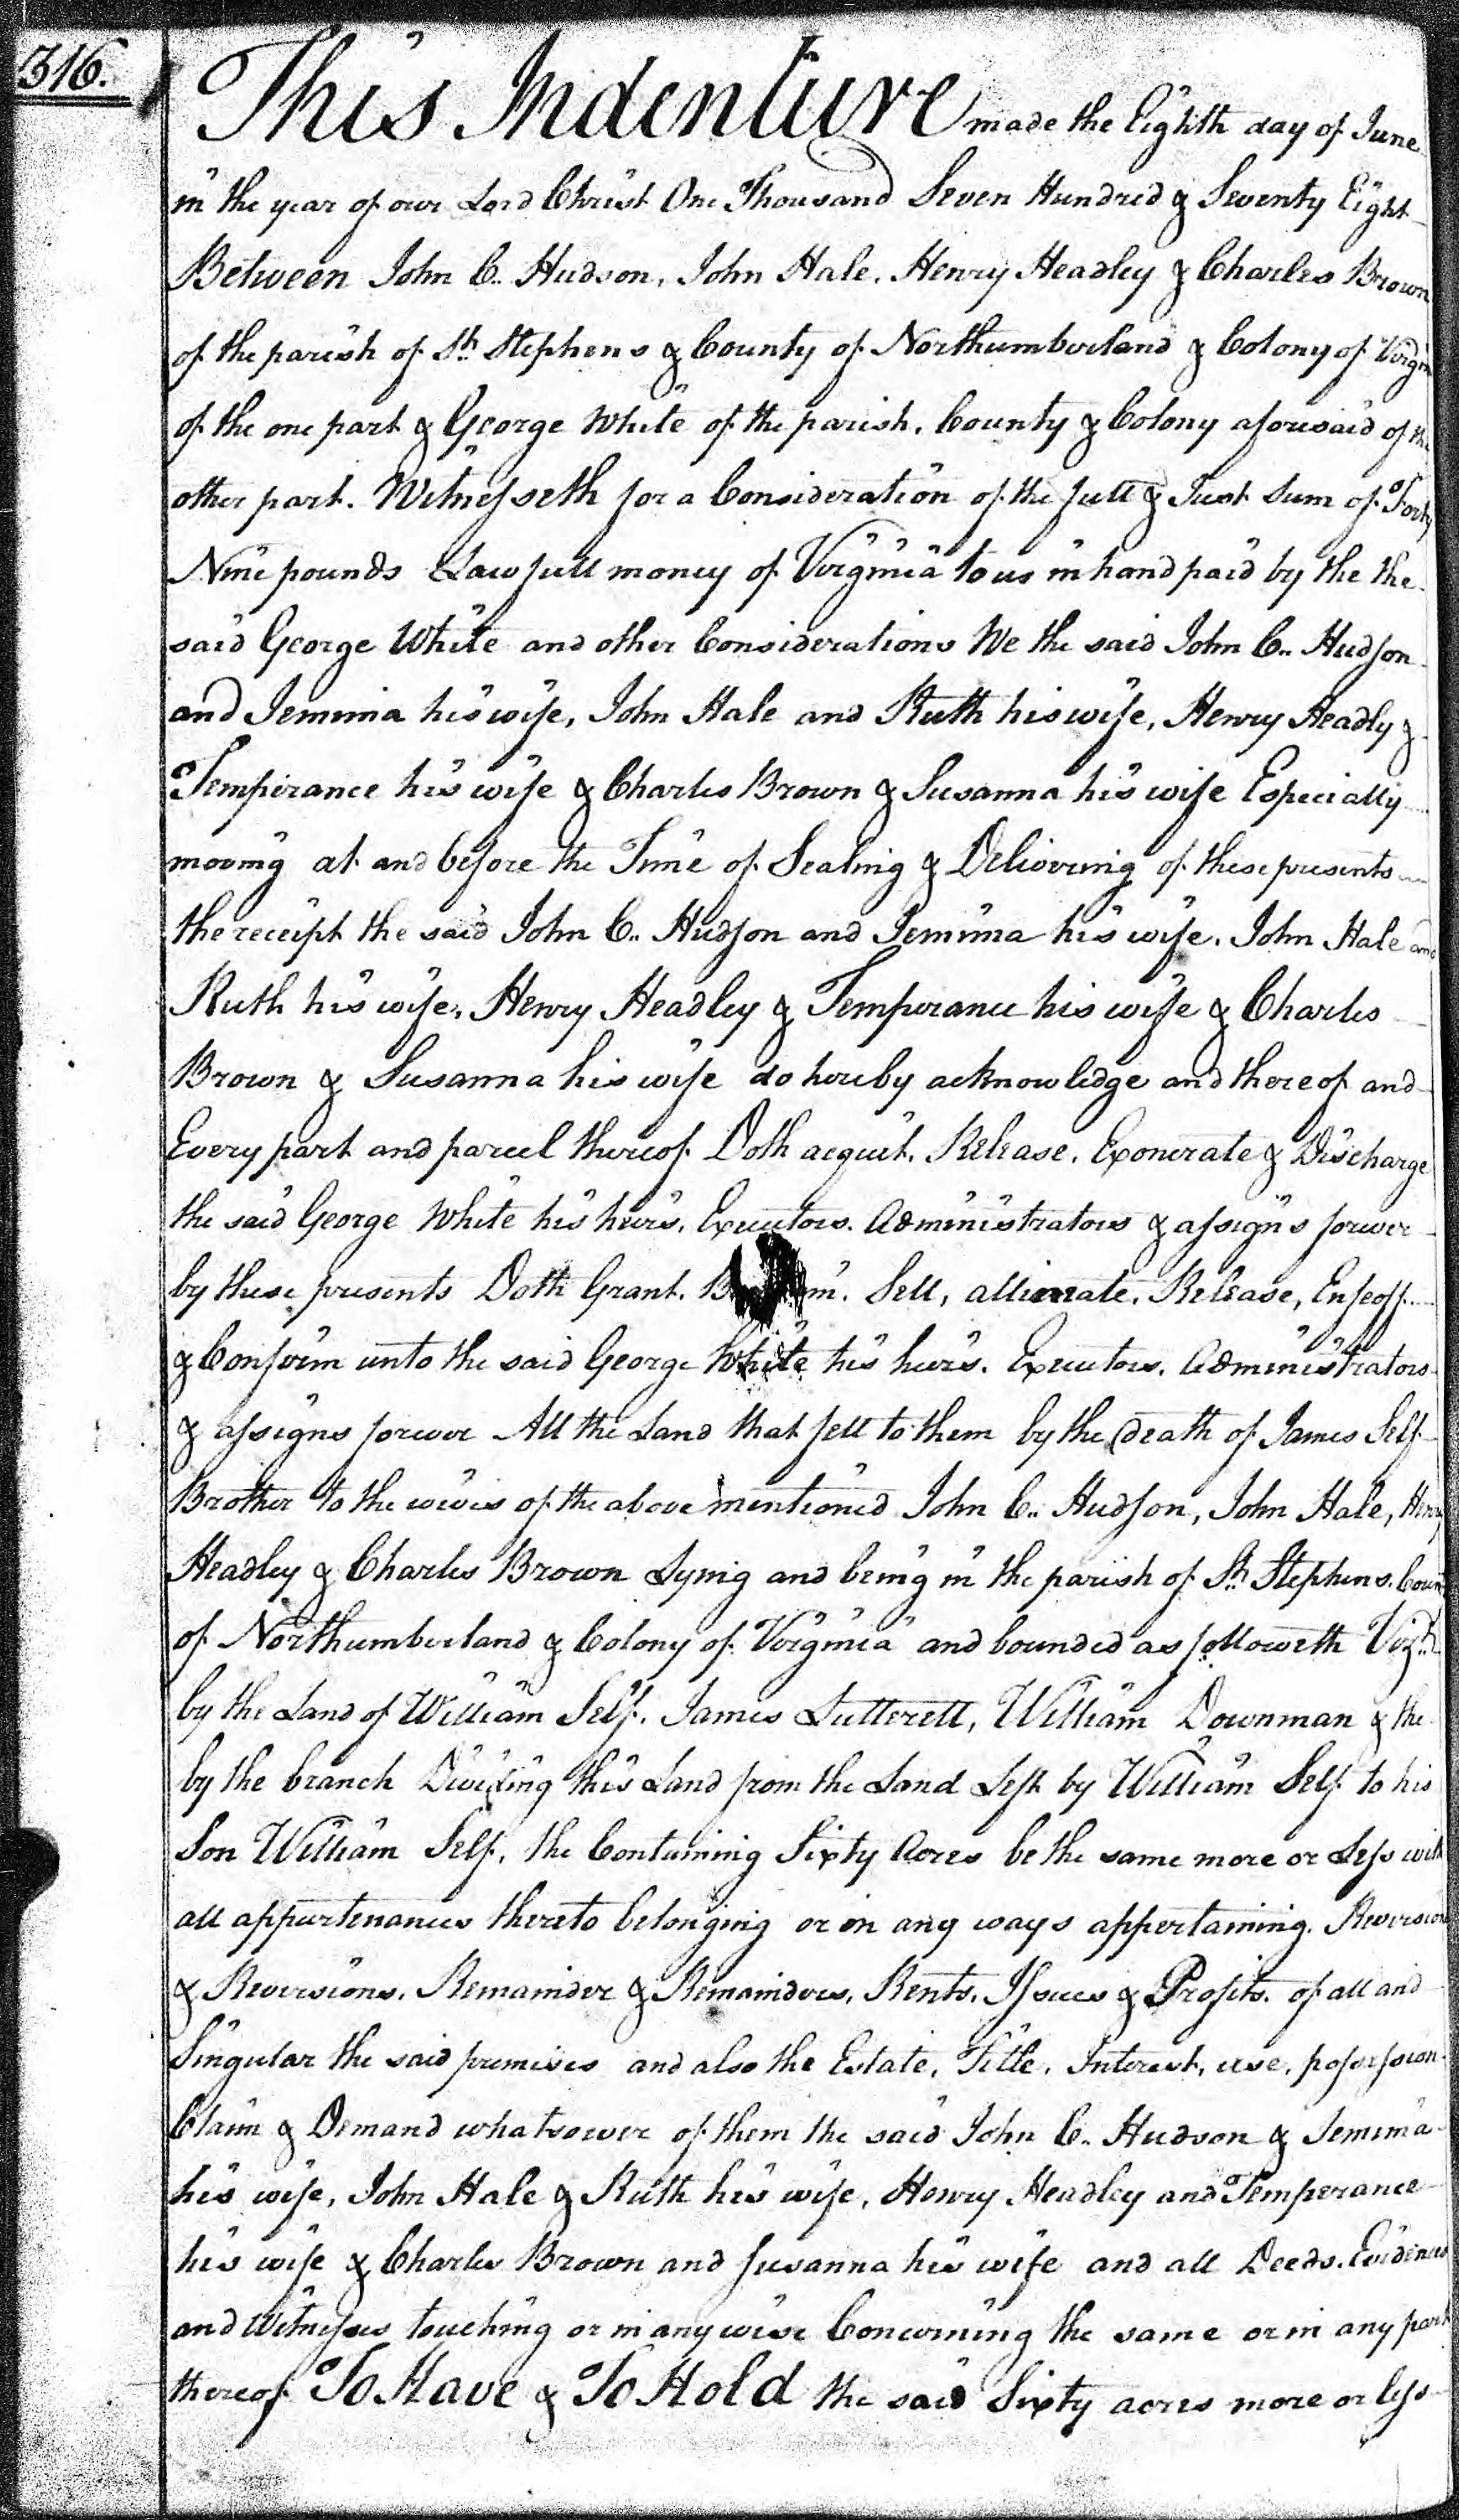 316.
This Indenture made the Eighth day of June
in the year of our Lord Christ One Thousand Seven Hundred & Seventy Eight
Between John C.. Hudson, John Hale, Henry Headley & Charles Brown
of the parish of St. Stephens & County of Northumberland & Colony of
of the one part & George White of the parish, County & Colony aforesaid of the
other part. Witnesseth for a Consideration of the full & Just Sum of Forty
Nine pounds Lawfull money of Virginia to us in hand paid by the the
said George White and other Considerations We the said John C.. Hudson
and Jemima his wife, John Hale and Ruth his wife, Henry Headly &
Temperance his wife & Charles Brown & Susanna his wife Especially
moving at and before the Time of Sealing & Delivering of these presents
the receipt the said John C.. Hudson and Jemima his wife, John Hale and
Ruth his wife, Henry Headley & Temperance his wife & Charles
Brown & Susanna his wife do hereby acknowledge and thereof and
Every part and parcel thereof Doth acquit, Release, Exonerate & Discharge
the said George White his heirs, Executors, Administrators & assigns forever
by these presents Doth Grant, Sell, allienate, Release, Enfeoff
& Confirm unto the said George White his heirs, Executors, Administrators
& assigns forever All the Land that fell to them by the death of James Self
Brother to the wives of the above mentioned John C.. Hudson, John Hale, Henry
Headley & Charles Brown Lying and being in the parish of St. Stephens,
of Northumberland & Colony of Virginia and bounded as followeth Vizt.
by the Land of William Self, James Lutterell, William Downman & the
by the branch Dividing this Land from the Land Left by William Self to his
Son William Self, the Containing Sixty Acres be the same more or Less with
all appurtenances thereto belonging or in any ways appertaining. Reversion
& Reversions, Remainder & Remainders, Rents, Issues & Profits, of all and
Singular the said premises and also the Estate, Title, Interest, use, possession
Claim & Demand whatsoever of them the said John C.. Hudson & Jemima
his wife, John Hale & Ruth his wife, Henry Headley and Temperance
his wife & Charles Brown and Susanna his wife and all Deeds, Evidences
and Witnesses touching or in any wise Concerning the same or in any part
thereof To Have & To Hold the said Sixty acres more or less